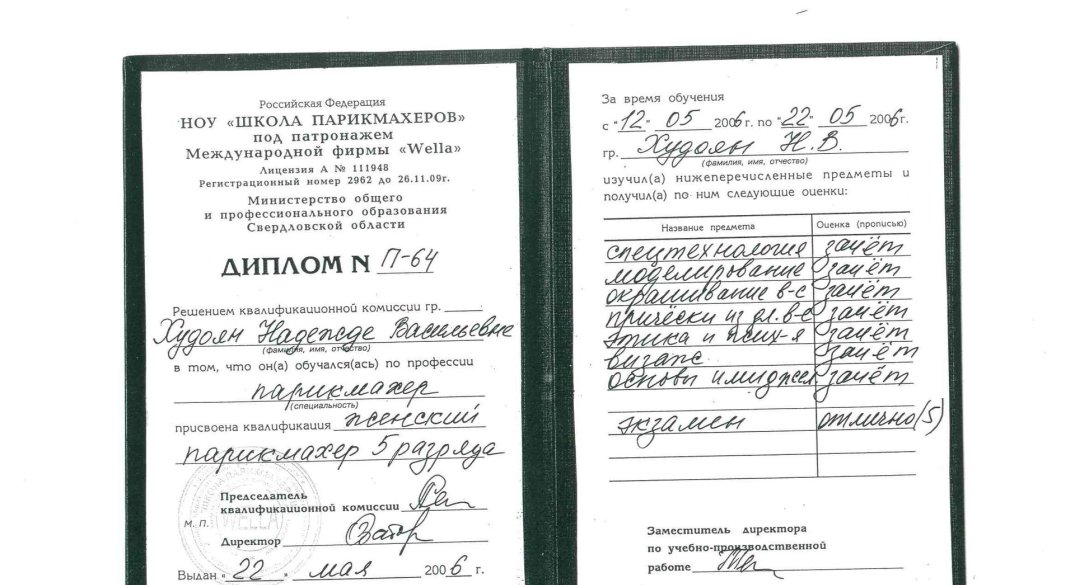 Российская Федерация
НОУ «ШКОЛА ПАРИКМАХЕРОВ»
под патронажем
Международной фирмы «Wella»
Лицензия А № 111948
Регистрационный номер 2962 до 26.11.09г.
Министерство общего
и профессионального образования
Свердловской области
ДИПЛОМ N П-64
Решением квалификационной комиссии гр.
Худоян Надежде Васильевне
(фамилия, имя, отчество)
в том, что он(а) обучался(ась) по профессии
парикмахер
(специальность)
присвоена квалификация женский
парикмахер 5 разряда
Председатель
квалификационной комиссии
М. П.
WELLA
Директор
Выдан "22" мая 2006 г.
За время обучения
с "12" 05 2006 г. по "22" 05 2006г.
гр. Худоян Н.В.
(фамилия, имя, отчество)
изучил(а) нижеперечисленные предметы и
получил(а) по ним следующие оценки:
Название предмета Оценка (прописью)
спецтехнология зачёт
моделирование зачёт
окрашивание в-с зачёт
причёски из дл. в-с зачёт
этика и псих-я зачёт
визаж зачёт
основы имиджел зачёт
экзамен отлично(5)
Заместитель директора
по учебно-производственной
работе